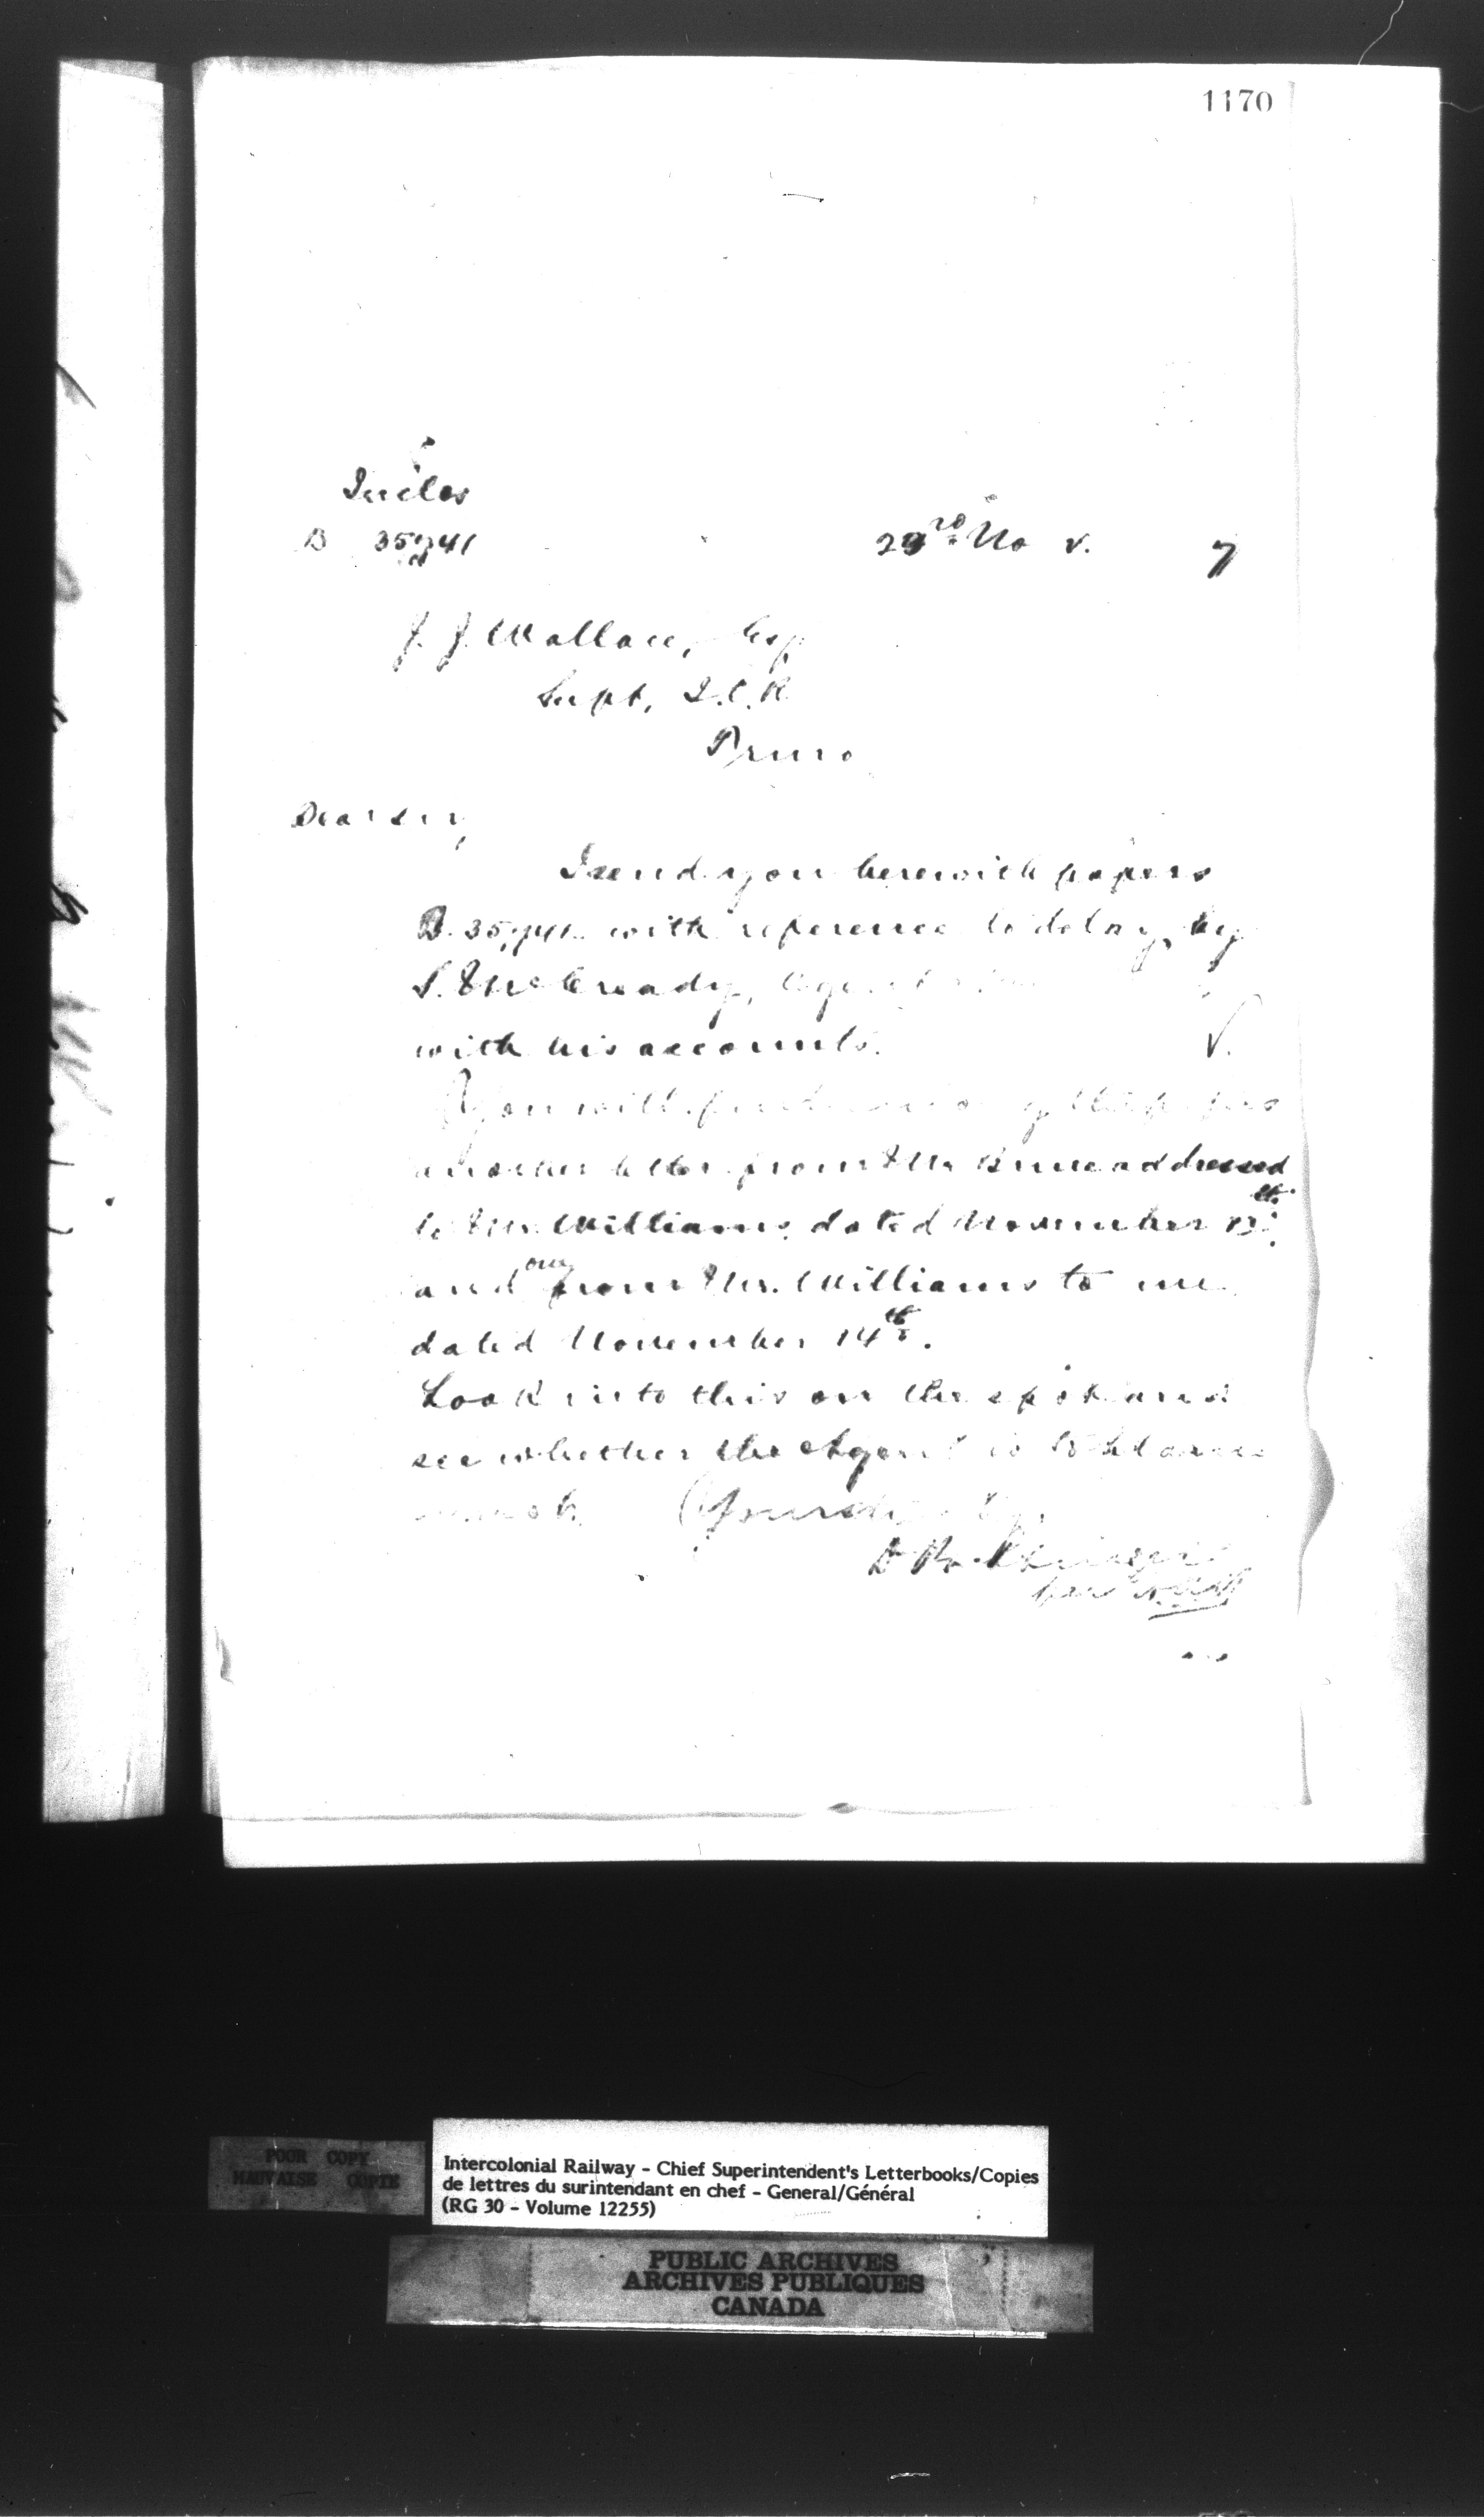 1170
Inclos
B 35941
23rd Nov. 7
J. J. Wallace, Esq
Supt, I.C.R
Truro
Dear Sir,
I send you herewith papers
B. 35,941 with reference to delay by
S. McCready, Agent
with his accounts. V.
You will find papers
another letter from Mr Bruce addressed
to Mr. Williams dated November 13th
and one from Mr. Williams to me
dated November 14th.
Look into this on the spot and
see whether the Agent is to blame
Yours truly
D Pottinger
per
POOR COPY
MAUVAISE COPIE
Intercolonial Railway - Chief Superintendent's Letterbooks/Copies
de lettres du surintendant en chef - General/Général
(RG 30 - Volume 12255)
PUBLIC ARCHIVES
ARCHIVES PUBLIQUES
CANADA